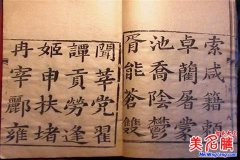 索咸籍賴
卓藺屠蒙
池喬陰鬱
胥能蒼雙
聞莘党翟
譚貢勞逄
姬申扶堵
冉宰酈雍
美名腾